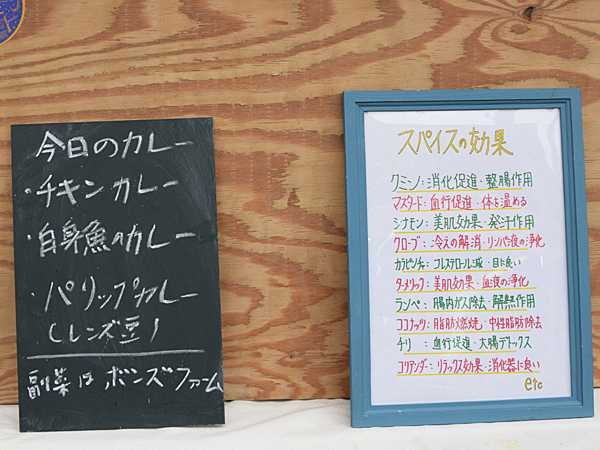 今日のカレー
・チキンカレー
・白身魚のカレー
・パリップカレー
(レンズ豆)
副菜は ボンズファーム
スパイスの効果
クミン:消化促進・整腸作用
マスタード:血行促進・体を温める
シナモン:美肌効果・発汗作用
クローブ:冷えの解消・リンパ液の浄化
カラピンチャ:コレステロール減・目に良い
ターメリック:美肌効果・血液の浄化
ランペ:腸内ガス除去・解熱作用
ココナッツ:脂肪燃焼・中性脂肪除去
チリ:血行促進・大腸デトックス
コリアンダー:リラックス効果・消化器に良い
etc